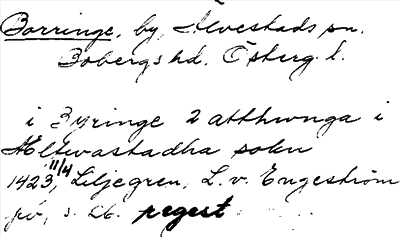 Borringe, by, Alvestads sn.
Bobergs hd. Österg. l.
i Byringe 2 atthunga i
Aleluastadha sokn
1423 11/4, Liljegren, L. v. Engeström
på, s. 26. pegert